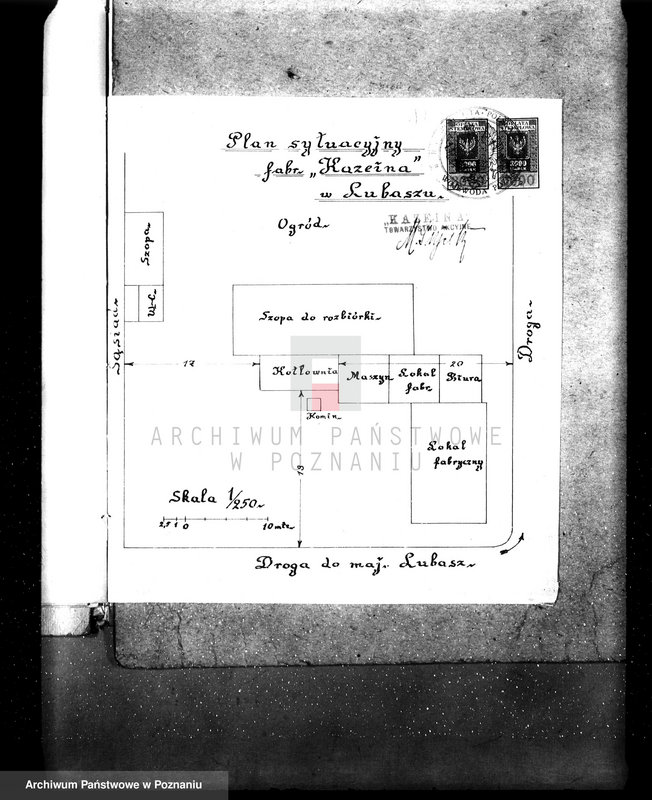 Plan sytuacyjny
fabr. „Kazeina”
w Lubaszu.
OPŁATA
STEMPLOWA
OPŁATA
STEMPLOWA
„KAZEINA”
TOWARZYSTWO AKCYJNE
Ogród.
Szopa
W-C.
Sąsiad
Szopa do rozbiórki.
Droga
17
Kotłownia
Maszyn.
Lokal
fabr.
20
Biura
Komin.
ARCHIWUM PAŃSTWOWE
W POZNANIU
Lokal
fabryczny
19
Skala 1/250.
2,5 1 0 10 mtr.
Droga do maj. Lubasz.
Archiwum Państwowe w Poznaniu